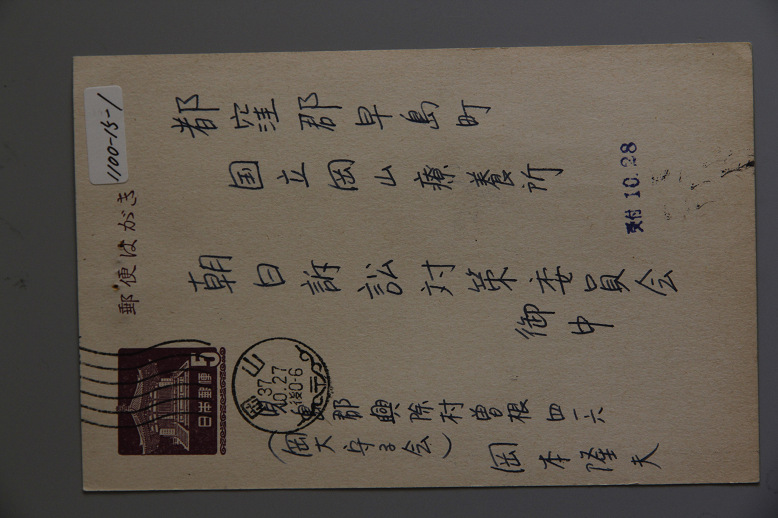 1100-15-1
郵便はがき
都窪郡早島町
国立岡山療養所
受付 10.28
朝日訴訟対策委員会
御中
5
日本郵便
岡山
37
10.27
後0-6
郡興除村曽根四一六
(岡大守る会)
岡本隆夫